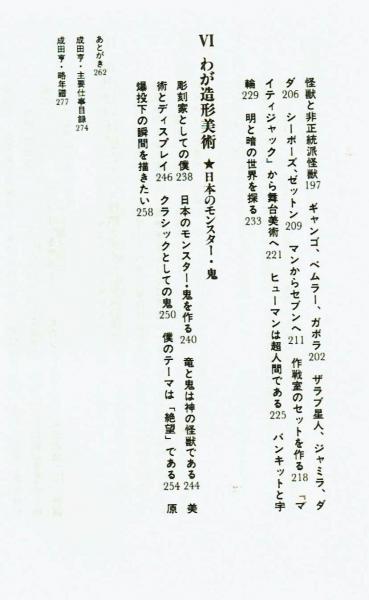 怪獣と非正統派怪獣197　ギャンゴ、ベムラー、ガボラ202　ザラブ星人、ジャミラ、ダ
ダ206　シーボーズ、ゼットン209　マンからセブンへ211　作戦室のセットを作る218　「マ
イティジャック」から舞台美術へ221　ヒューマンは超人間である225　バンキットと宇
輪229　明と暗の世界を探る233
VI わが造形美術 ★日本のモンスター・鬼
彫刻家としての僕238　日本のモンスター・鬼を作る240　竜と鬼は神の怪獣である244　美
術とディスプレイ246　クラシックとしての鬼250　僕のテーマは「絶望」である254　原
爆投下の瞬間を描きたい258
あとがき262
成田亨・主要仕事目録274
成田亨・略年譜277